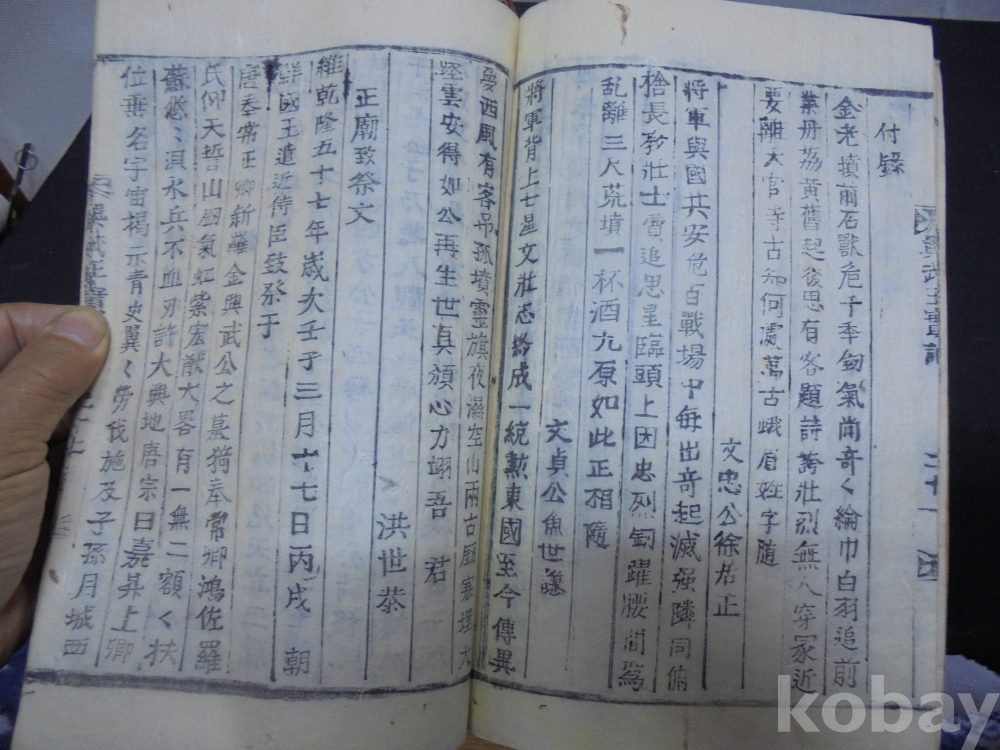 付錄
金老墳前石獸危千季釰氣尚奇〻綸巾白羽追前
業丹荔黃舊起後思有客題詩誇壯烈無人穿冢近
要離大官寺古知何處萬古峨眉姓字随
文忠公徐居正
將軍與國共安危百戰場中每出奇起滅强隣同俯
拾長教壯士賈追思星臨頭上因忠烈釰躍腰間爲
乱離三人荒墳一杯酒九原如此正相隨
文貞公魚世謙
將軍背上七星文壯志終成一統勲東國至今傳異
夢西風有客吊孤墳靈旗夜濕空山雨古劒寒埋大
塋雲安得如公再生世真頒心力翊吾 君
洪世恭
正廟致祭文
維乾隆五十七年歲次壬子三月十七日丙戌 朝
鮮國王遣近侍臣致祭于
唐奉常正卿新羅金興武公之墓猗奉常卿鴻佐羅
氏仰天誓山釰氣虹紫宏猷大器有一無二額〻扶
蘇悠〻浿水兵不血刃許大輿地唐宗曰嘉昇上卿
位垂名宇宙揭示青史翼〻勞伐施及子孫月城西
二十一
kobay